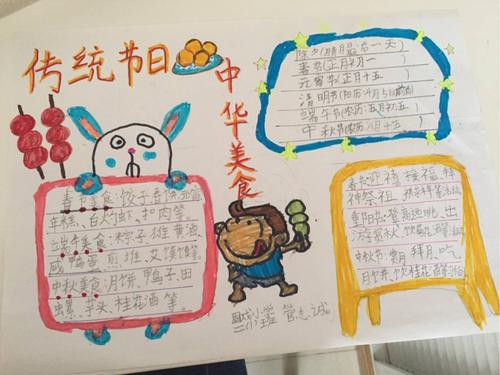 传统节日
中华美食
除夕(腊月最后一天)
春节(正月初一)
元宵节(正月十五)
清明节(阳历4月5日前后)
端午节(农历:五月初五)
中秋节(农历八月十五)
春节美食:饺子春饼元宵
年糕、白灼虾、扣肉等。
端午美食:粽子雄黄酒
咸鸭蛋 煎堆、艾馍馍等。
中秋美食:月饼、鸭子、田
螺、芋头、桂花酒等。
迎禧 接福、拜
神祭祖
重阳节:登高远眺、出
游赏秋
中秋节: 拜月、吃
月饼、饮桂花酒等习俗
管志诚